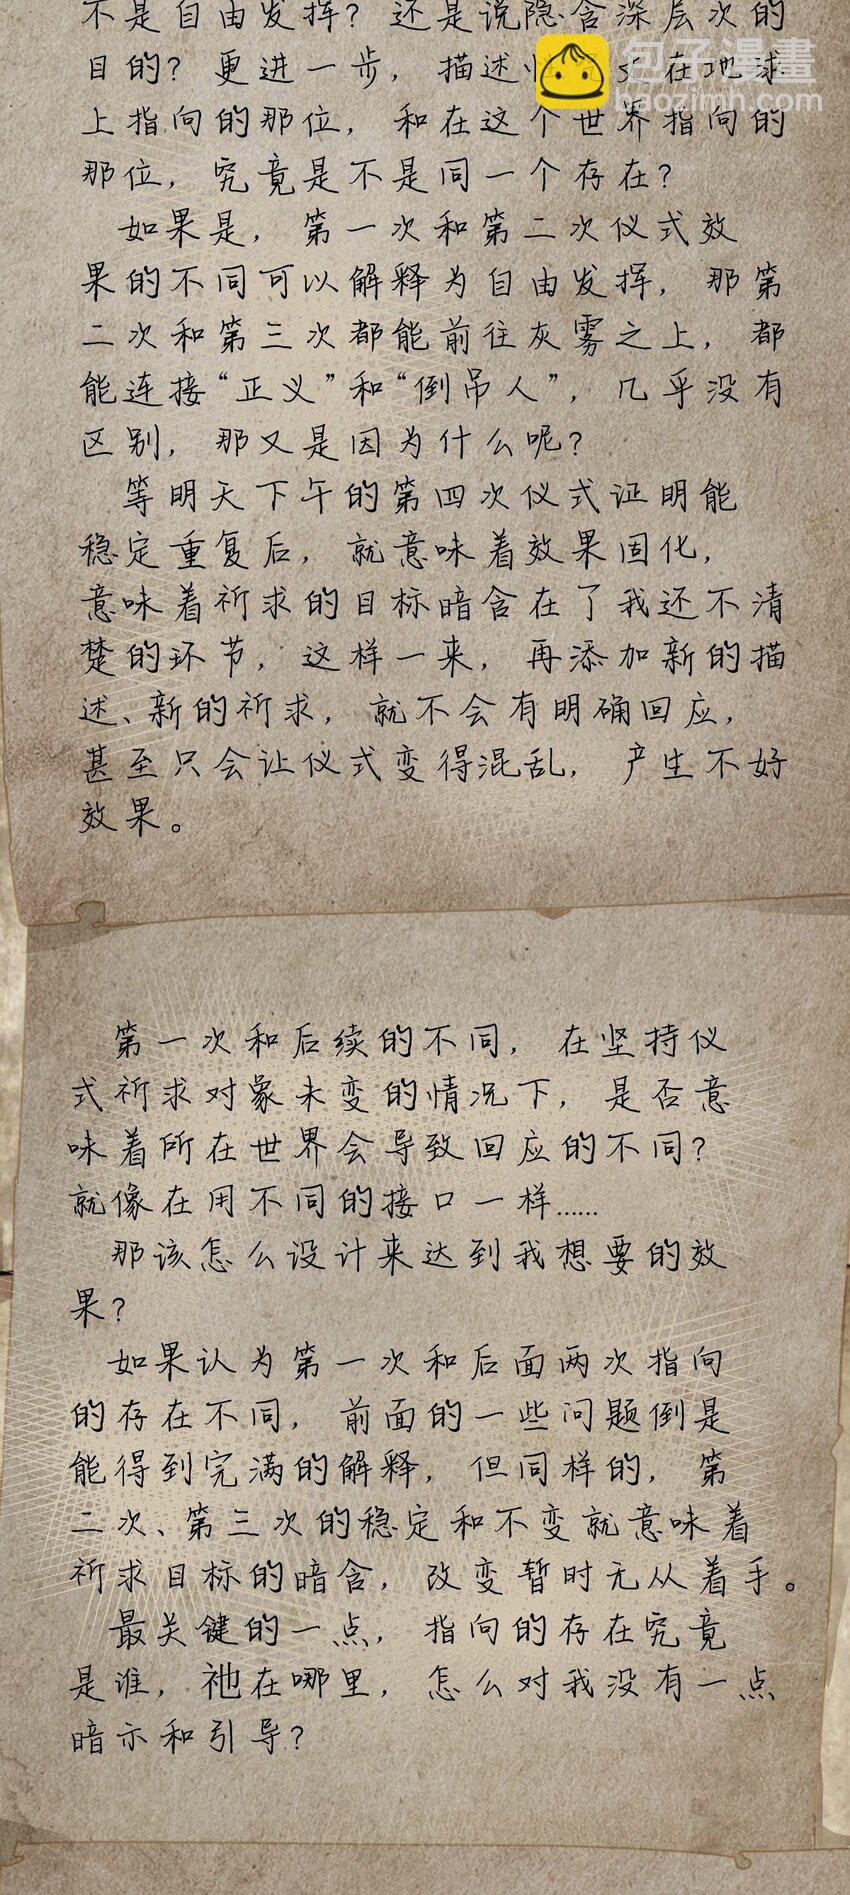 不是自由发挥？还是说隐含深层次的
目的？更进一步，描述 在地球
上指向的那位，和在这个世界指向的
那位，究竟是不是同一个存在？
如果是，第一次和第二次仪式效
果的不同可以解释为自由发挥，那第
二次和第三次都能前往灰雾之上，都
能连接“正义”和“倒吊人”，几乎没有
区别，那又是因为什么呢？
等明天下午的第四次仪式证明能
稳定重复后，就意味着效果固化，
意味着祈求的目标暗含在了我还不清
楚的环节，这样一来，再添加新的描
述、新的祈求，就不会有明确回应，
甚至只会让仪式变得混乱，产生不好
效果。
第一次和后续的不同，在坚持仪
式祈求对象未变的情况下，是否意
味着所在世界会导致回应的不同？
就像在用不同的接口一样……
那该怎么设计来达到我想要的效
果？
如果认为第一次和后面两次指向
的存在不同，前面的一些问题倒是
能得到完满的解释，但同样的，第
二次、第三次的稳定和不变就意味着
祈求目标的暗含，改变暂时无从着手。
最关键的一点，指向的存在究竟
是谁，祂在哪里，怎么对我没有一点
暗示和引导？
包子漫畫
baozimh.com